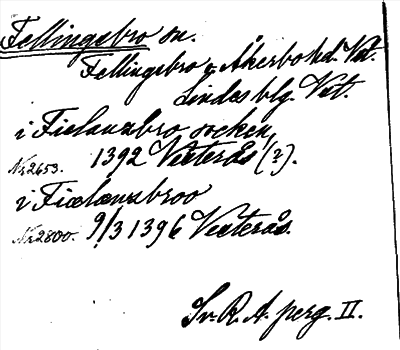 Fellingsbro sn.
Fellingsbro o. Åkerbo hd. Vstl.
Lindes blg. Vstl.
i Fiælanzbro socken,
Nr 2653. 1392 Vesterås (?).
i Fiælænzbroo
Nr 2800. 9/3 1396 Vesterås.
Sv. R. A. perg. II.